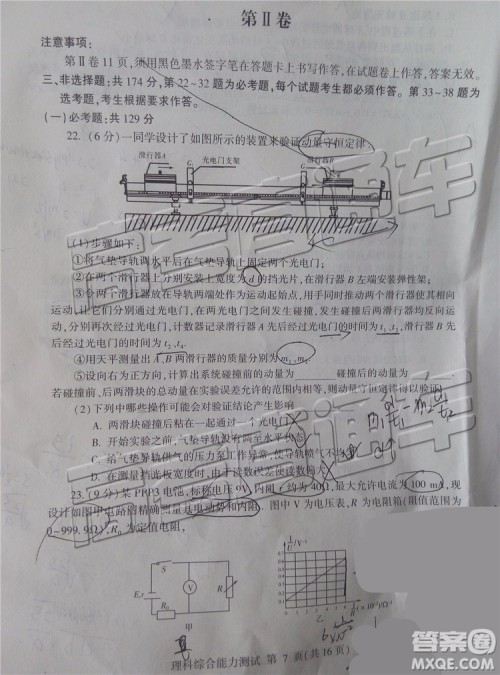 第Ⅱ卷
注意事项：
第Ⅱ卷 11 页，须用黑色墨水签字笔在答题卡上书写作答，在试题卷上作答，答案无效。
三、非选择题：共 174 分，第 22~32 题为必考题，每个试题考生都必须作答。第 33~38 题为
选考题，考生根据要求作答。
(一) 必考题：共 129 分
22.（6 分）一同学设计了如图所示的装置来验证动量守恒定律：
滑行器A 光电门支架 滑行器B
G₁ G₂
(1) 步骤如下：
①将气垫导轨调水平后在气垫导轨上固定两个光电门；
②在两个滑行器上分别安装上宽度为 d 的挡光片，在滑行器 B 左端安装弹性架；
③将滑行器放在导轨两端处作为运动起始点，用手同时推动两个滑行器使其相向
运动，让它们分别通过光电门，在两光电门之间发生碰撞，发生碰撞后两滑行器均反向运
动，分别再次经过光电门，计数器记录滑行器 A 先后经过光电门的时间为 t₁、t₃，滑行器 B
先后经过光电门的时间为 t₂、t₄.
④用天平测量出 A、B 两滑行器的质量分别为 m₁、m₂
⑤设向右为正方向，计算出系统碰撞前的动量为 碰撞后的动量为
若碰撞前、后两滑块的总动量在实验误差允许的范围内相等，则动量守恒定律得以验证.
(2) 下列中哪些操作可能会对验证结论产生影响
A. 两滑块碰撞后粘在一起通过一个光电门
B. 开始实验之前，气垫导轨没有调至水平状态
C. 气垫导轨的压力泵工作异常，使导轨
D. 在测量挡光板宽度时，由于读数误差使得读数
23.（9 分）某 PRP3 电池，标称电压 9V，内阻 r 约为 40Ω，最大允许电流为 100 mA，现
设计如图甲电路图精确测量其电动势和内阻. 图中 V 为电压表，R 为电阻箱（阻值范围为
0~999.9Ω），R₀ 为定值电阻，
S
E,r V R
R₀
甲
乙
理科综合能力测试 第 7 页（共 16 页）
高考直通车
答案圈
MXQE.COM